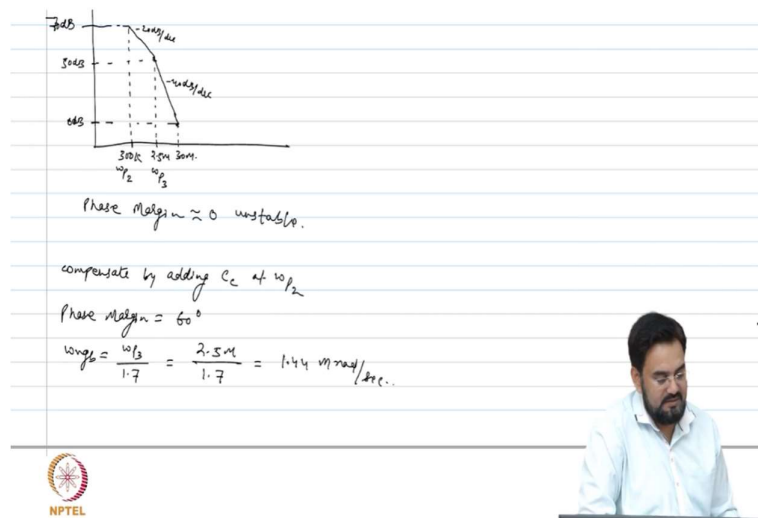 70dB
-20dB/dec
50dB
-40dB/dec
0dB
300K 2.5M 30M.
ωp2 ωp3
Phase Margin ≈ 0 unstable.
compensate by adding Cc at ωp2
Phase Margin = 60°
ωugb = ωp3/1.7 = 2.5M/1.7 = 1.44 M rad/sec..
NPTEL